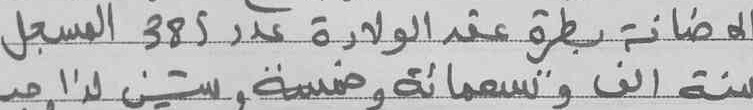 الاضافة بطرة عقد الولادة عدد 385 المسجل
سنة الف وتسعمائة وخمسة وستين لذا وجب